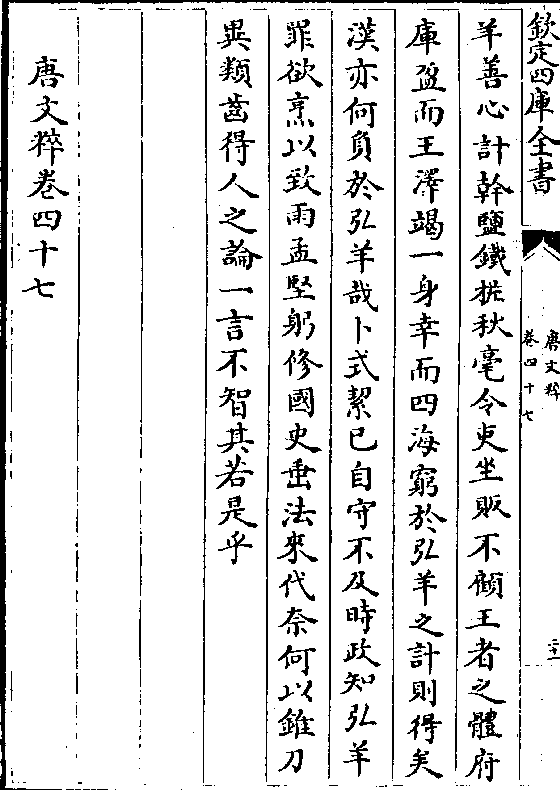 欽定四庫全書
唐文粹
卷四十七
二十一
羊善心計幹鹽鐵析秋毫令吏坐販不顧王者之體府
庫盈而王澤竭一身幸而四海窮於弘羊之計則得矣
漢亦何負於弘羊哉卜式絜己自守不及時政知弘羊
罪欲烹以致雨孟堅躬修國史垂法來代奈何以錐刀
異類齒得人之論一言不智其若是乎
唐文粹卷四十七